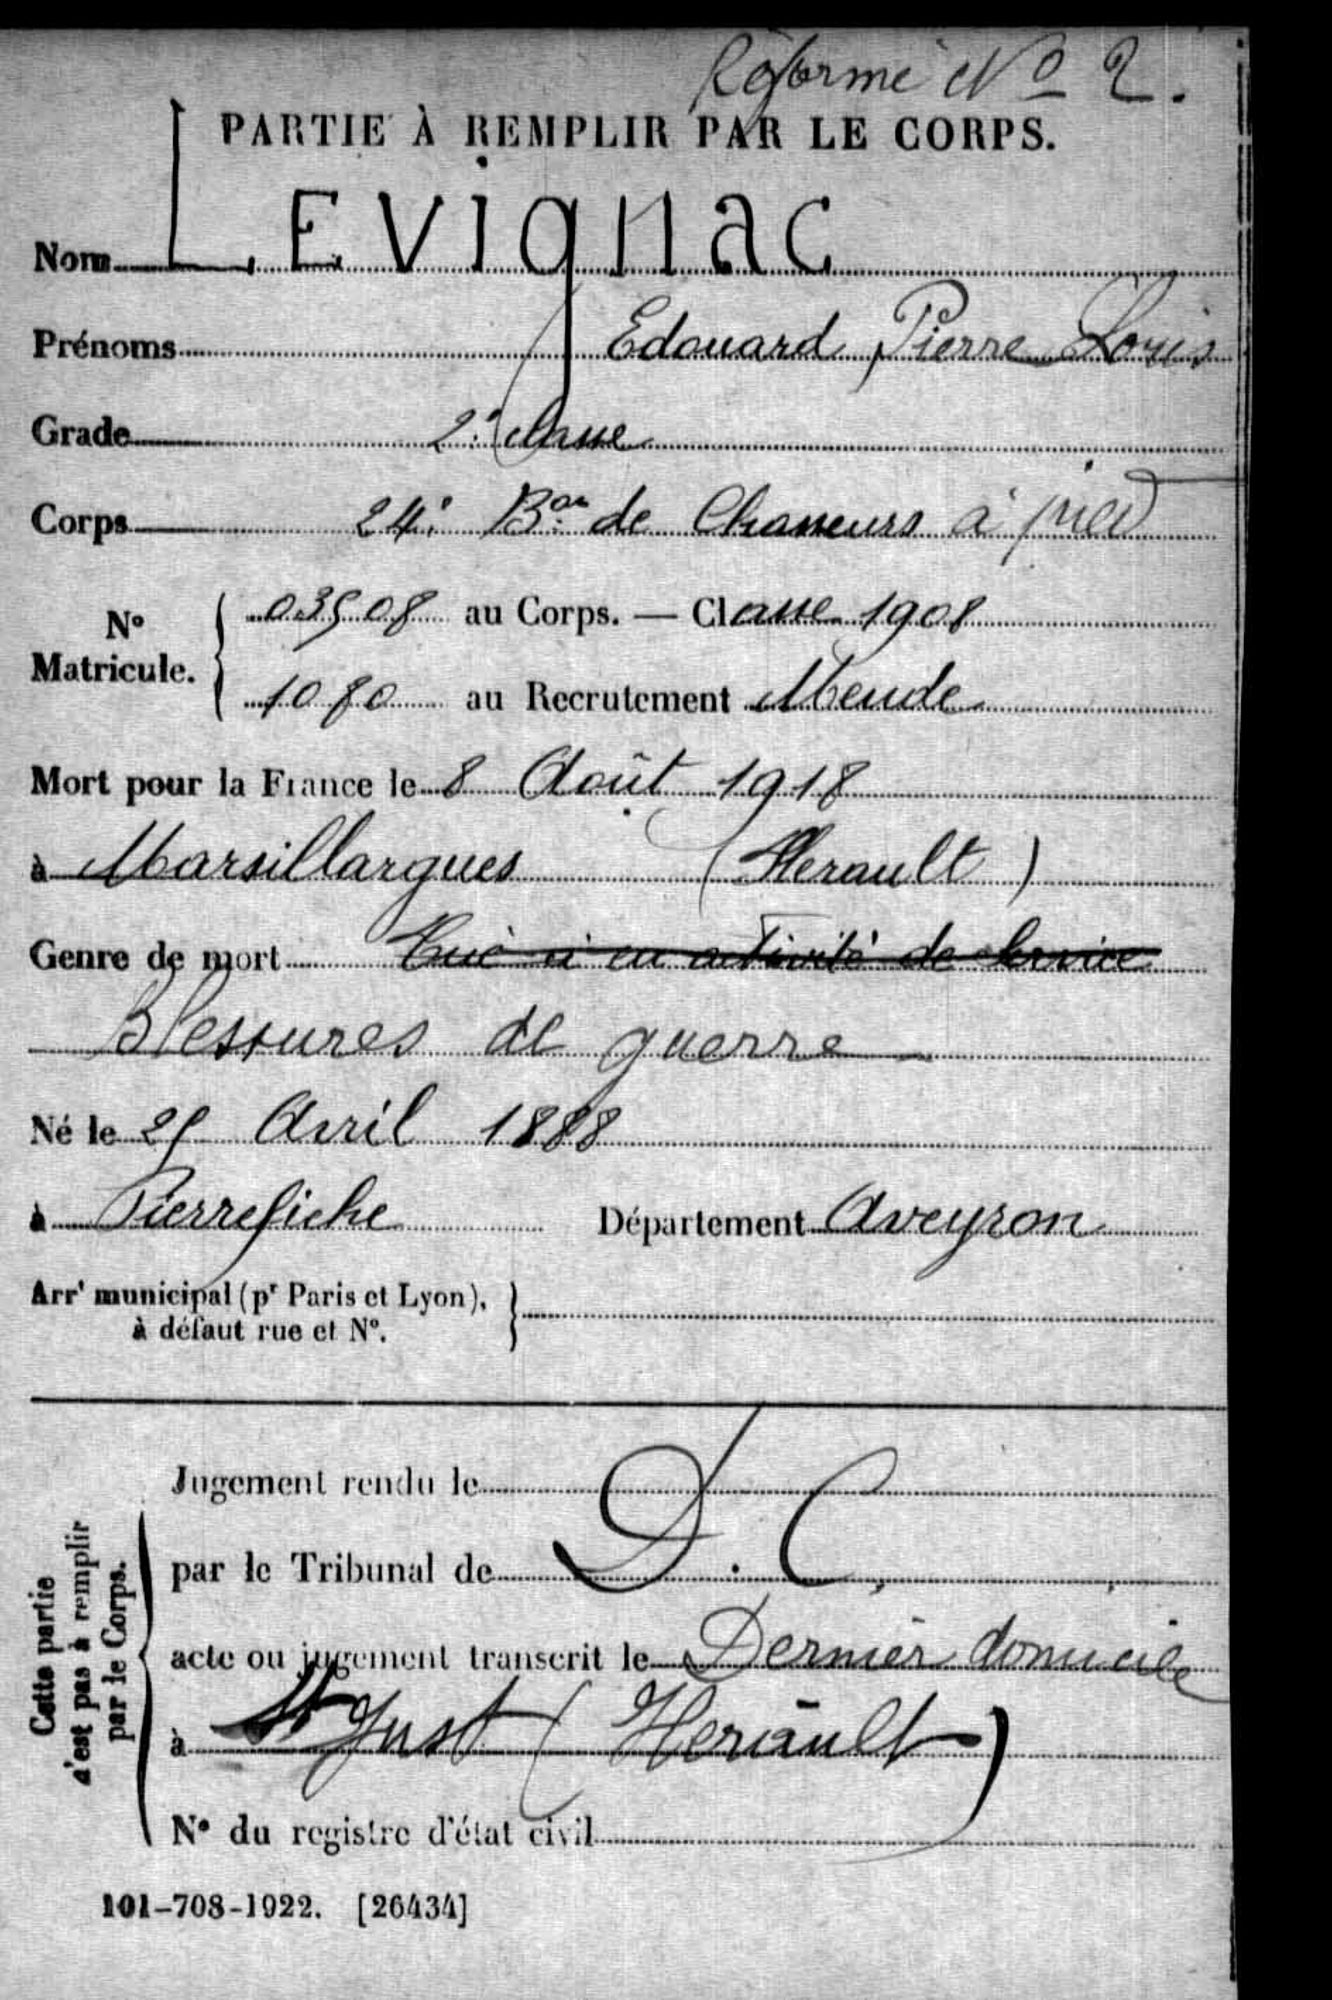 Réformé No 2.
PARTIE À REMPLIR PAR LE CORPS.
Nom LEvignac
Prénoms Edouard Pierre Louis
Grade 2e classe
Corps 24e Bon de Chasseurs à pied
No Matricule. { 03508 au Corps. — Classe 1908
1080 au Recrutement Mende
Mort pour la France le 8 Août 1918
à Marsillargues (Herault)
Genre de mort Tué à en activité de Service
Blessures de guerre
Né le 25 Avril 1888
à Pierrefiche Département Aveyron
Arrt municipal (pr Paris et Lyon),
à défaut rue et No.
Cette partie
n'est pas à remplir
par le Corps.
Jugement rendu le
par le Tribunal de D. C.
acte ou jugement transcrit le Dernier domicile
à St Just (Herault)
No du registre d'état civil
101-708-1922. [26434]